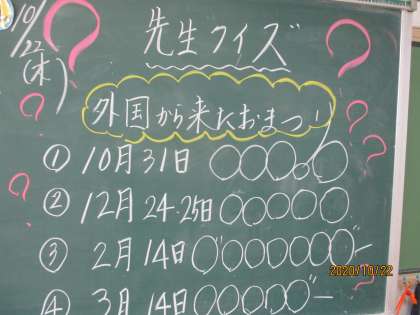 10/22(木)
先生クイズ
外国から来たおまつり
① 10月31日 ○○○o○
② 12月24.25日 ○○○○○
③ 2月14日 ○゛○○○○○○゛ー
④ 3月14日 ○○○○○゛ー
2020/10/22